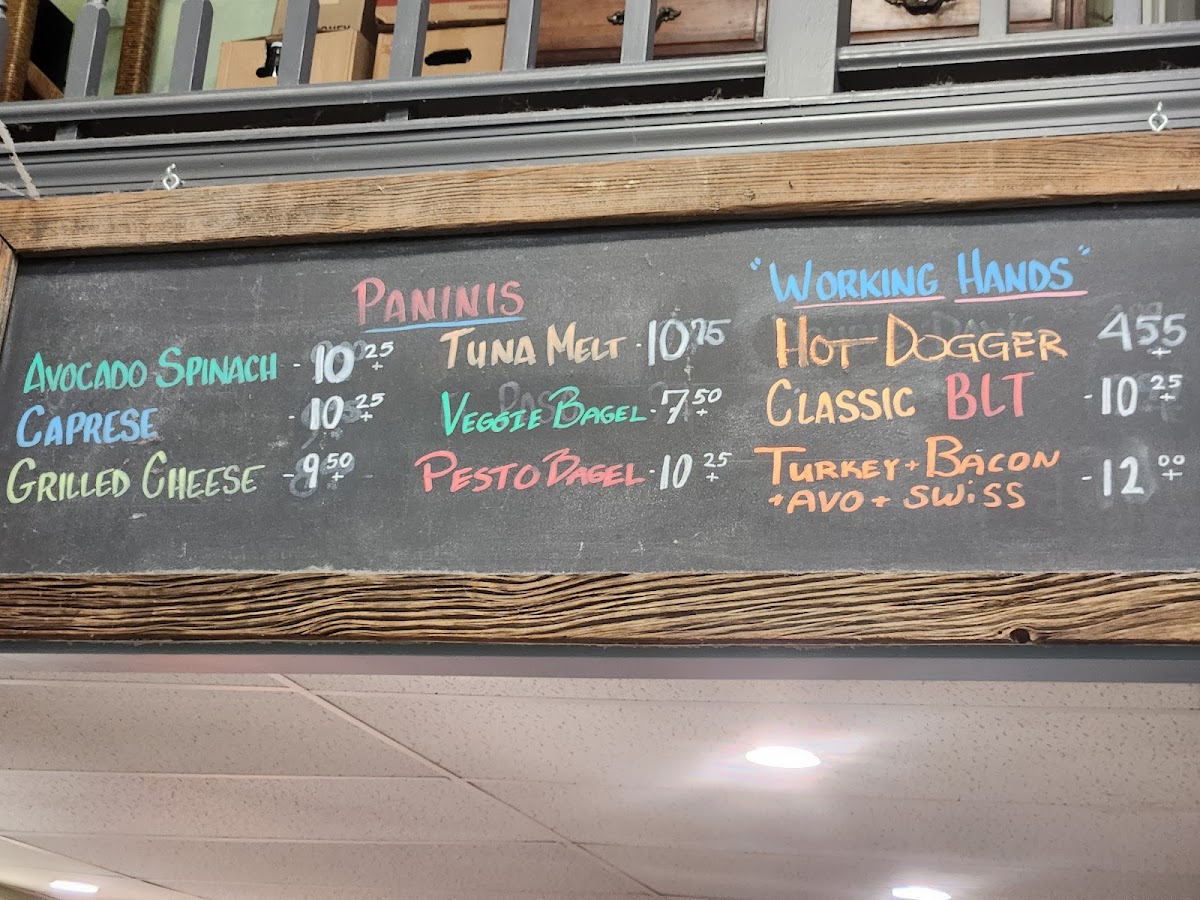 PANINIS
AVOCADO SPINACH - 10 25 +
CAPRESE - 10 25 +
GRILLED CHEESE - 9 50 +
TUNA MELT - 10 75
VEGGIE BAGEL - 7 50 +
PESTO BAGEL - 10 25 +
"WORKING HANDS"
HOT DOGGER 4 55 +
CLASSIC BLT - 10 25 +
TURKEY + BACON - 12 00 +
+ AVO + SWISS